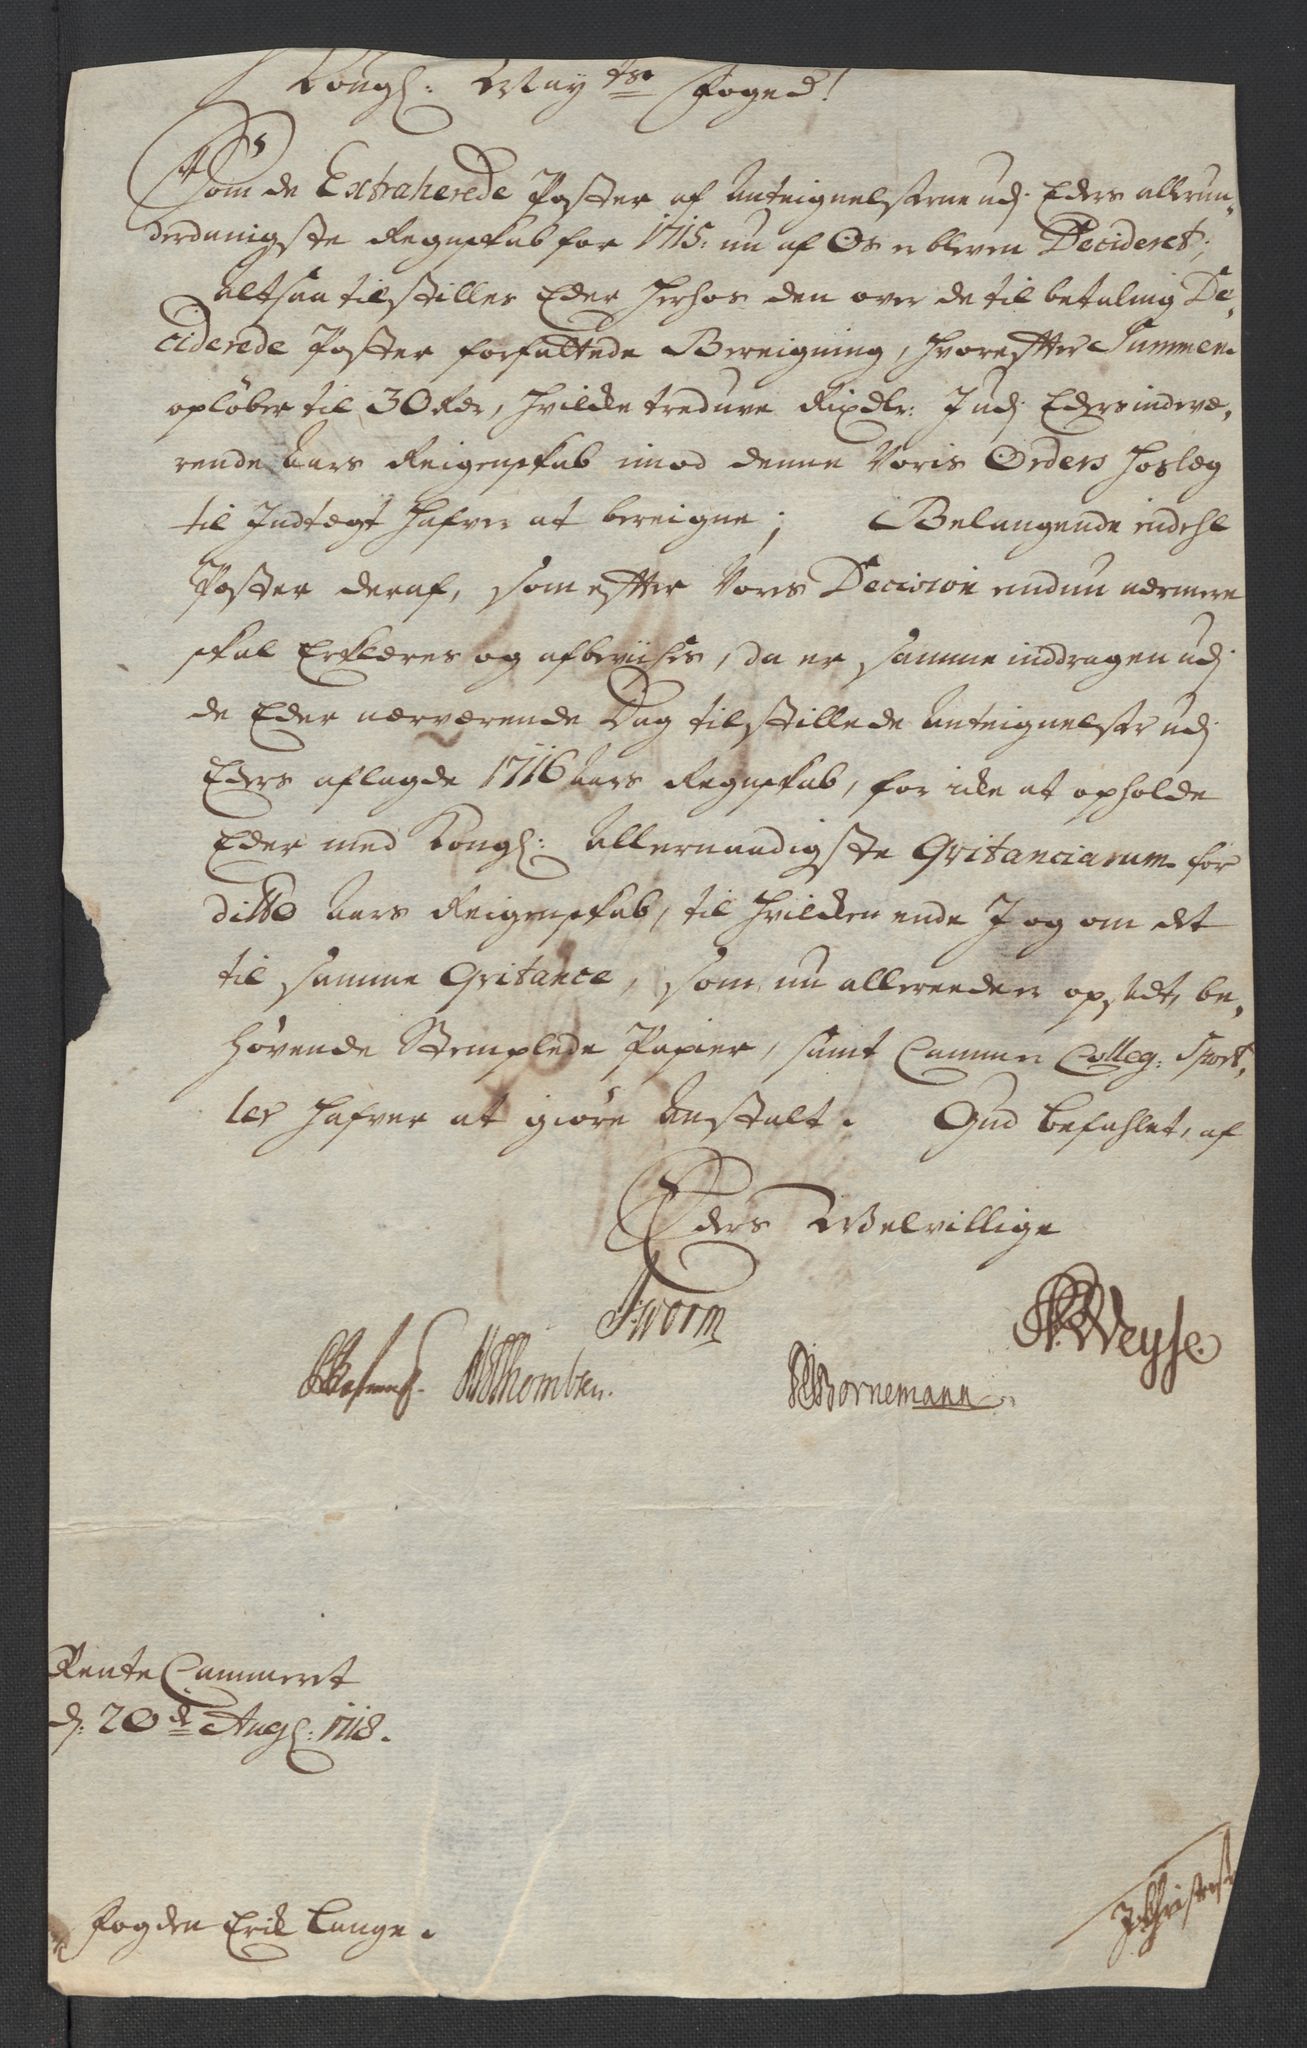 Kongl: May^ts Foged!
Som de Extraherede Poster af Anteignelserne udj Eders allerun-
derdanigste Regnskab for 1715: nu af Os er bleven Decideret;
Altsaa tilstilles Eder herhos den over de til betaling De-
ciderede Poster forfattede Bereigning, hvorefter Summen
opløber til 30 Rdr, hvilke tredive Rixdlr: I udj Eders indevæ-
rende Aars Reigenskab imod denne Voris Orders hoslæg
til Indtægt hafver at bereigne; Belangende endehl
Poster deraf, som efter Vores Decision endnu nermere
skal Erklæres og afbeviises, da er samme inddragen udj
de Eder nærværende Dag tilstillede Anteignelser udj
Eders aflagde 1716 Aars Regnskab, for icke at opholde
Eder med Kongl: Allernaadigste Qvitanciarum for
ditto Aars Reigenskab, til hvilcken ende I og om det
til samme Qvitance, som nu allereede er opsadt, be-
høvende Stemplede Papier, samt Cammer Colleg: Sport-
ler hafver at giøre Anstalt. Gud befahlet, af
Eders Velvillige
Worm
Weyse.
Thombsen.
Bornemann
Rente Cammeret
d: 20^de Aug: 1718.
Fogden Erik Lange.